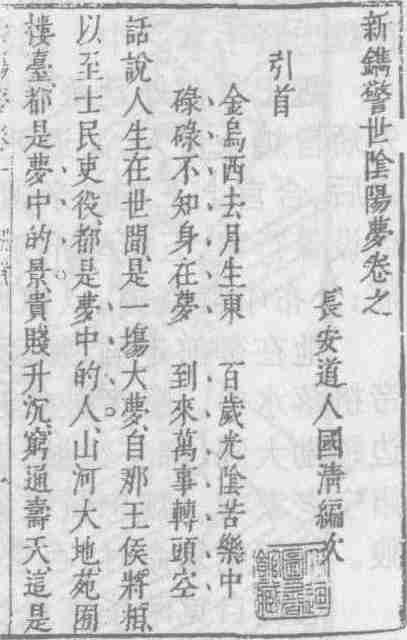 新鐫警世陰陽夢卷之
長安道人國清編次
引首
金烏西去月生東　百歲光陰苦樂中
碌碌不知身在夢　到來萬事轉頭空
話說人生在世間、是一場大夢、自那王侯將相、
以至士民吏役、都是夢中的人、山河大地、苑囿
樓臺、都是夢中的景、貴賤升沉、窮通壽夭、這是